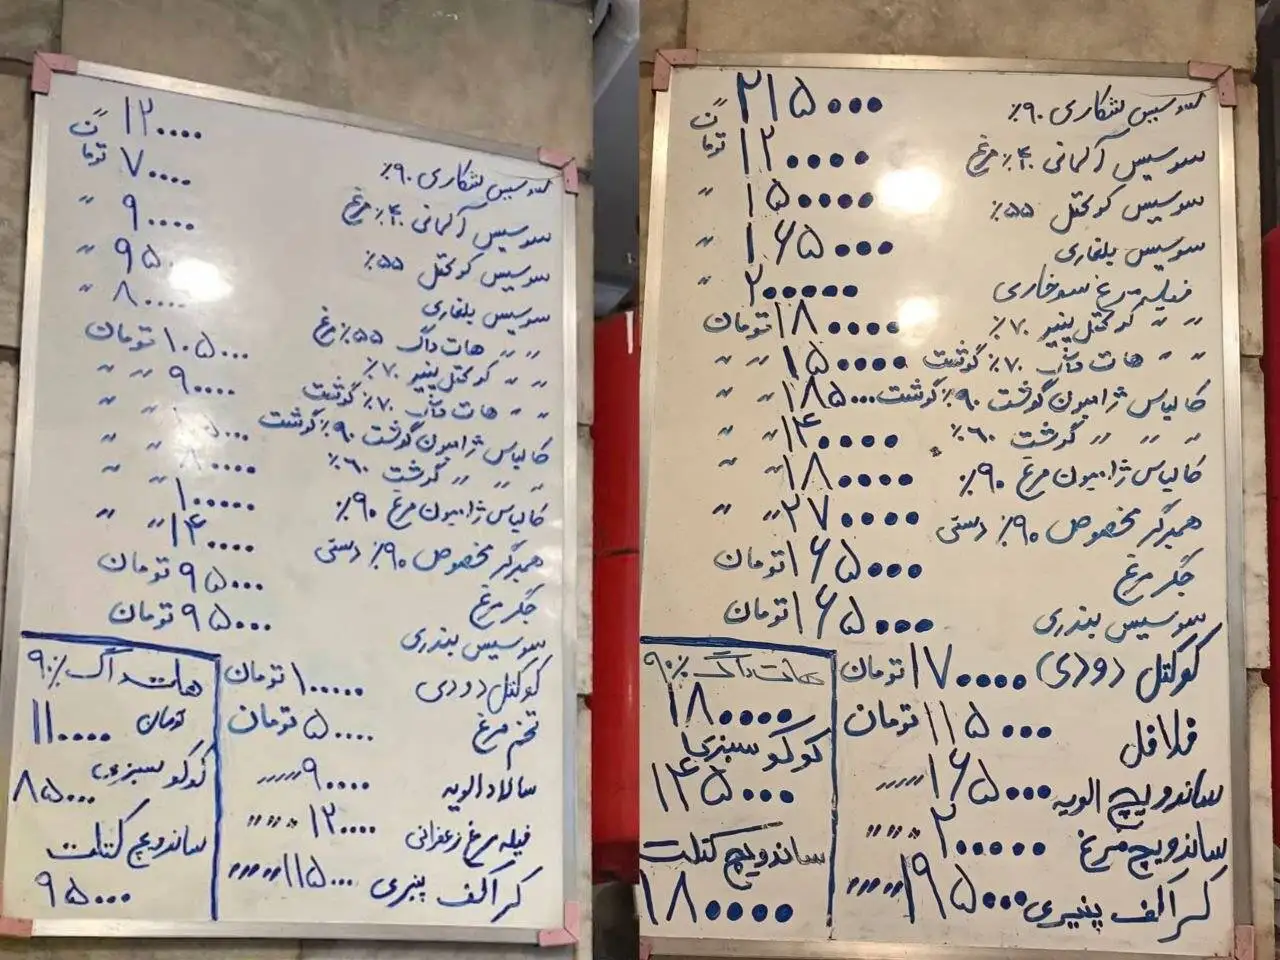 سوسیس شکاری ۹۰٪ ۱۲۰۰۰۰ ت
سوسیس آلمانی ۴۰٪ مرغ ۷۰۰۰۰ تومان
سوسیس کوکتل ۵۵٪ ۹۰۰۰۰ "
سوسیس بلغاری ۹۵۰ "
" " هات داگ ۵۵٪ مرغ ۸۰۰۰۰ "
" " کوکتل پنیر ۷۰٪ ۱۰۵۰۰۰ تومان
" " هات داگ ۷۰٪ گوشت ۹۰۰۰۰ " "
کالباس ژامبون گوشت ۹۰٪ گوشت
" " " گوشت ۶۰٪ ۸۰۰۰۰ " "
کالباس ژامبون مرغ ۹۰٪ ۱۰۰۰۰۰ " "
همبرگر مخصوص ۹۰٪ دستی ۱۴۰۰۰۰ " "
جگر مرغ ۹۵۰۰۰ تومان
سوسیس بندری ۹۵۰۰۰ تومان
کوکتل دودی ۱۰۰۰۰۰ تومان
تخم مرغ ۵۰۰۰۰ تومان
سالاد الویه ۹۰۰۰۰ """"
فیله مرغ زعفرانی ۱۲۰۰۰۰ """"
کرالف پنیری ۱۱۵۰۰۰ """"
هات داگ ۹۰٪
۱۱۰۰۰۰ تومان
کوکو سبزی
۸۵۰۰۰
ساندویچ کتلت
۹۵۰۰۰
سوسیس شکاری ۹۰٪ ۲۱۵۰۰۰ ت
سوسیس آلمانی ۴۰٪ مرغ ۱۲۰۰۰۰ تومان
سوسیس کوکتل ۵۵٪ ۱۵۰۰۰۰ "
سوسیس بلغاری ۱۶۵۰۰۰ "
فیله مرغ سوخاری ۲۰۰۰۰۰ "
" " کوکتل پنیر ۷۰٪ ۱۸۰۰۰۰ تومان
" " هات داگ ۷۰٪ گوشت ۱۵۰۰۰۰ " "
کالباس ژامبون گوشت ۹۰٪ گوشت ۱۸۵۰۰۰ " "
" " " گوشت ۶۰٪ ۱۴۰۰۰۰ " "
کالباس ژامبون مرغ ۹۰٪ ۱۸۰۰۰۰ " "
همبرگر مخصوص ۹۰٪ دستی ۲۷۰۰۰۰ " "
جگر مرغ ۱۶۵۰۰۰ تومان
سوسیس بندری ۱۶۵۰۰۰ تومان
کوکتل دودی ۱۷۰۰۰۰ تومان
فلافل ۱۱۵۰۰۰ تومان
ساندویچ الویه ۱۶۵۰۰۰ """"
ساندویچ مرغ ۲۰۰۰۰۰ """"
کرالف پنیری ۱۹۵۰۰۰ """"
هات داگ ۹۰٪
۱۸۰۰۰۰
کوکو سبزی
۱۴۵۰۰۰
ساندویچ کتلت
۱۸۰۰۰۰